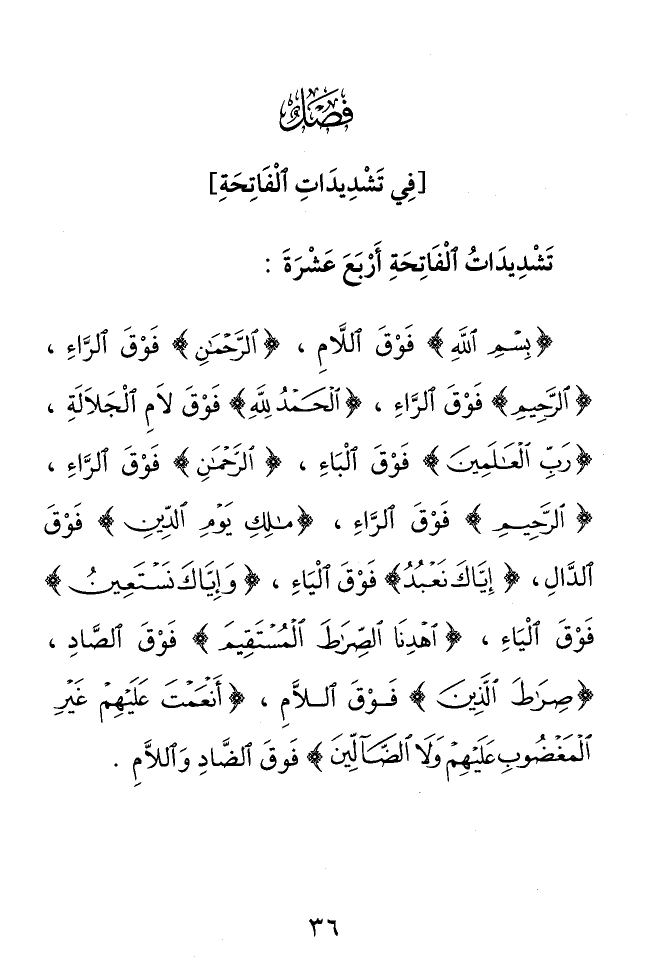 فَصْلٌ
[فِي تَشْدِيدَاتِ ٱلْفَاتِحَةِ]
تَشْدِيدَاتُ ٱلْفَاتِحَةِ أَرْبَعَ عَشْرَةَ :
﴿بِسْمِ ٱللَّهِ﴾ فَوْقَ ٱللَّامِ ، ﴿ٱلرَّحْمَٰنِ﴾ فَوْقَ ٱلرَّاءِ ،
﴿ٱلرَّحِيمِ﴾ فَوْقَ ٱلرَّاءِ ، ﴿ٱلْحَمْدُ لِلَّهِ﴾ فَوْقَ لاَمِ ٱلْجَلاَلَةِ ،
﴿رَبِّ ٱلْعَٰلَمِينَ﴾ فَوْقَ ٱلْبَاءِ ، ﴿ٱلرَّحْمَٰنِ﴾ فَوْقَ ٱلرَّاءِ ،
﴿ٱلرَّحِيمِ﴾ فَوْقَ ٱلرَّاءِ ، ﴿مَٰلِكِ يَوْمِ ٱلدِّينِ﴾ فَوْقَ
ٱلدَّالِ ، ﴿إِيَّاكَ نَعْبُدُ﴾ فَوْقَ ٱلْيَاءِ ، ﴿وَإِيَّاكَ نَسْتَعِينُ﴾
فَوْقَ ٱلْيَاءِ ، ﴿ٱهْدِنَا ٱلصِّرَٰطَ ٱلْمُسْتَقِيمَ﴾ فَوْقَ ٱلصَّادِ ،
﴿صِرَٰطَ ٱلَّذِينَ﴾ فَوْقَ ٱللاَّمِ ، ﴿أَنْعَمْتَ عَلَيْهِمْ غَيْرِ
ٱلْمَغْضُوبِ عَلَيْهِمْ وَلَا ٱلضَّآلِّينَ﴾ فَوقَ ٱلضَّادِ وَٱللاَّمِ .
٣٦